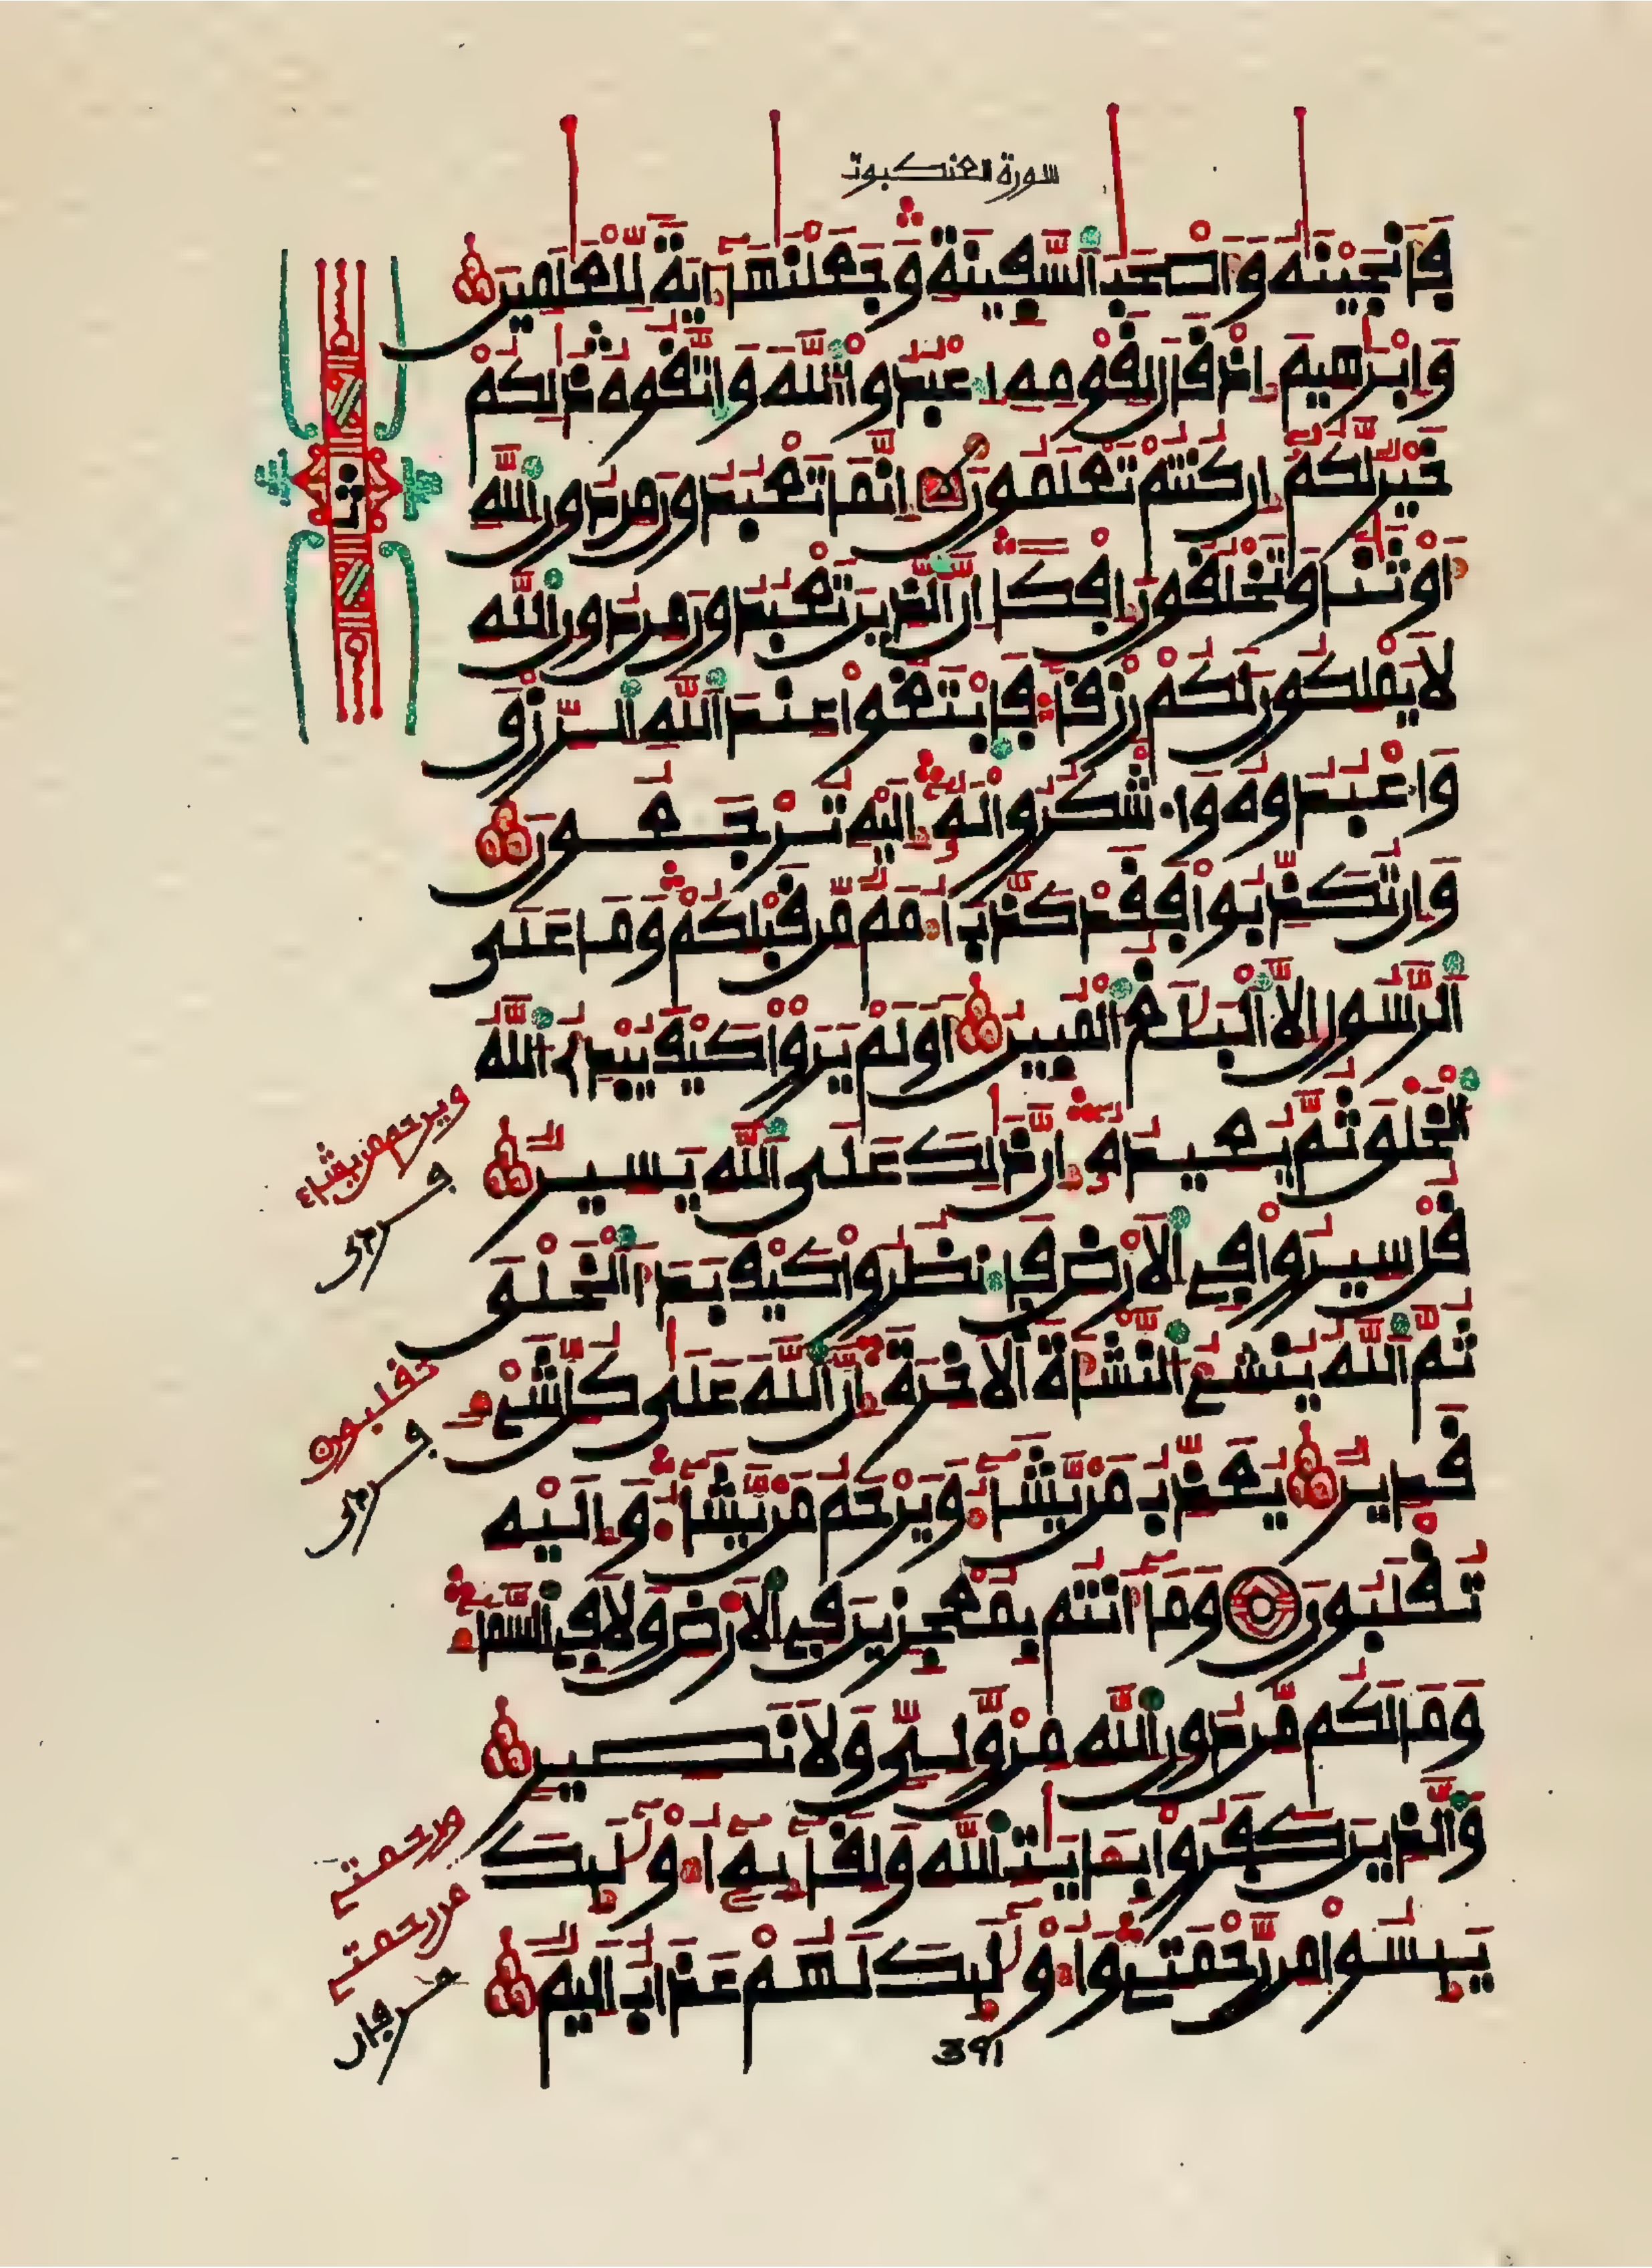 سورة العنكبوت
فَأَنجَيْنَٰهُ وَأَصْحَٰبَ ٱلسَّفِينَةِ وَجَعَلْنَٰهَآ ءَايَةً لِّلْعَٰلَمِينَ
وَإِبْرَٰهِيمَ إِذْ قَالَ لِقَوْمِهِ ٱعْبُدُواْ ٱللَّهَ وَٱتَّقُوهُ ذَٰلِكُمْ
خَيْرٌ لَّكُمْ إِن كُنتُمْ تَعْلَمُونَ إِنَّمَا تَعْبُدُونَ مِن دُونِ ٱللَّهِ
أَوْثَٰنًا وَتَخْلُقُونَ إِفْكًا إِنَّ ٱلَّذِينَ تَعْبُدُونَ مِن دُونِ ٱللَّهِ
لَا يَمْلِكُونَ لَكُمْ رِزْقًا فَٱبْتَغُواْ عِندَ ٱللَّهِ ٱلرِّزْقَ
وَٱعْبُدُوهُ وَٱشْكُرُواْ لَهُ إِلَيْهِ تُرْجَعُونَ
وَإِن تُكَذِّبُواْ فَقَدْ كَذَّبَ أُمَمٌ مِّن قَبْلِكُمْ وَمَا عَلَى
ٱلرَّسُولِ إِلَّا ٱلْبَلَٰغُ ٱلْمُبِينُ أَوَلَمْ يَرَوْاْ كَيْفَ يُبْدِئُ ٱللَّهُ
ٱلْخَلْقَ ثُمَّ يُعِيدُهُ إِنَّ ذَٰلِكَ عَلَى ٱللَّهِ يَسِيرٌ
قُلْ سِيرُواْ فِي ٱلْأَرْضِ فَٱنظُرُواْ كَيْفَ بَدَأَ ٱلْخَلْقَ
ثُمَّ ٱللَّهُ يُنشِئُ ٱلنَّشْأَةَ ٱلْأَخِرَةَ إِنَّ ٱللَّهَ عَلَىٰ كُلِّ شَيْءٍ
قَدِيرٌ يُعَذِّبُ مَن يَّشَآءُ وَيَرْحَمُ مَن يَّشَآءُ وَإِلَيْهِ
تُقْلَبُونَ وَمَآ أَنتُم بِمُعْجِزِينَ فِي ٱلْأَرْضِ وَلَا فِي ٱلسَّمَآءِ
وَمَا لَكُم مِّن دُونِ ٱللَّهِ مِنْ وَّلِيٍّ وَلَا نَصِيرٍ
وَٱلَّذِينَ كَفَرُواْ بِـَٔايَٰتِ ٱللَّهِ وَلِقَآئِهِ أُوْلَٰٓئِكَ
يَئِسُواْ مِن رَّحْمَتِي وَأُوْلَٰٓئِكَ لَهُمْ عَذَابٌ أَلِيمٌ
ويرحم من يشاء
تقلبون
من رحمتي
من رحمتي
391